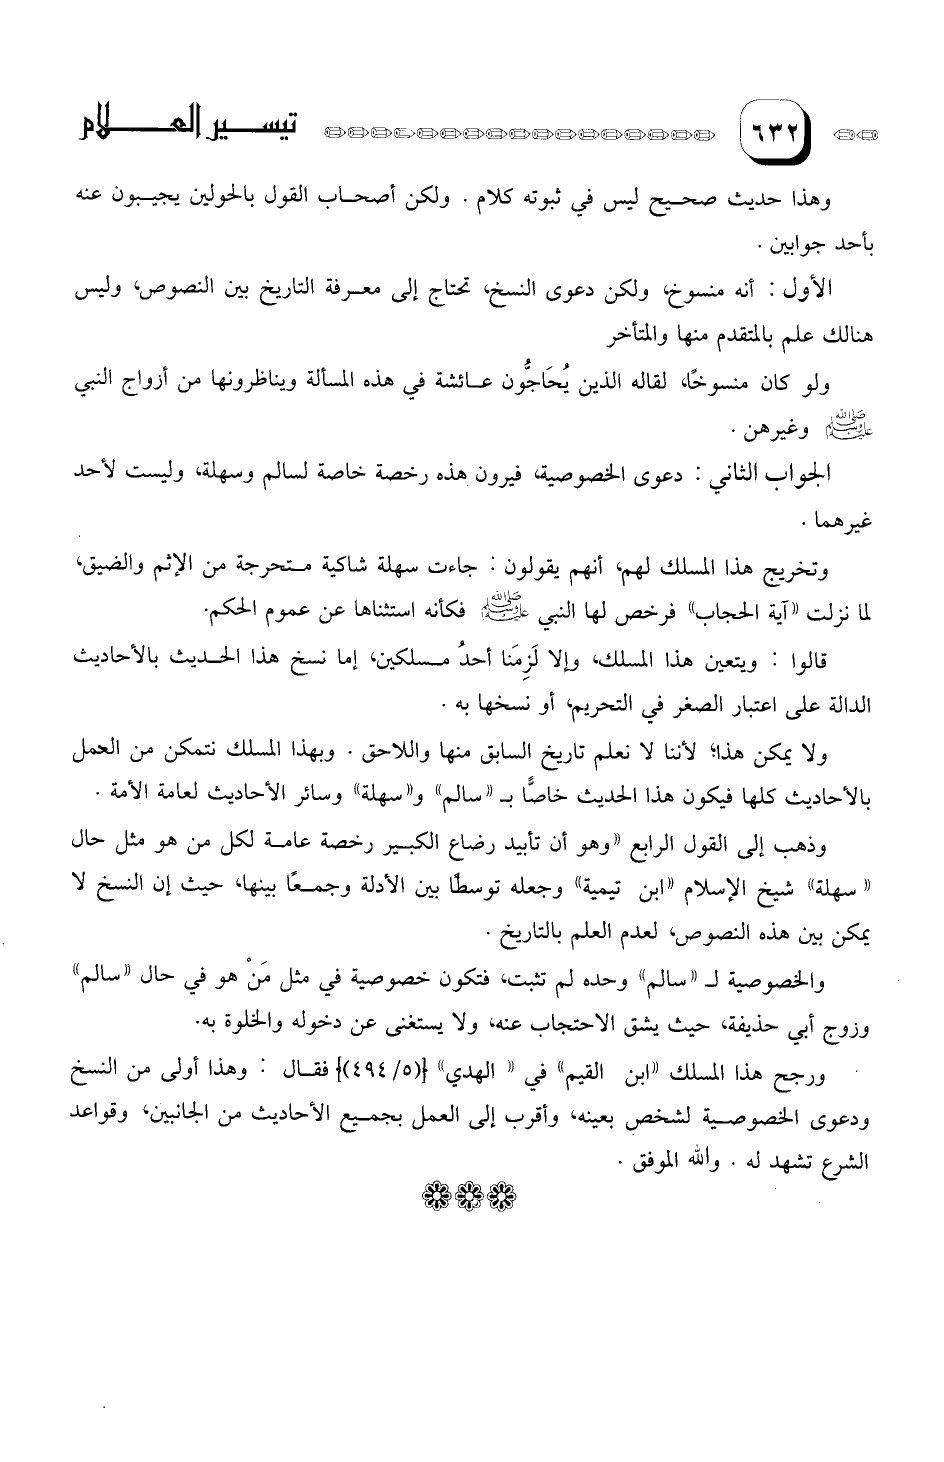 ٦٣٢ تيسير العلام
وهذا حديث صحيح ليس في ثبوته كلام . ولكن أصحاب القول بالحولين يجيبون عنه
بأحد جوابين .
الأول : أنه منسوخ، ولكن دعوى النسخ، تحتاج إلى معرفة التاريخ بين النصوص، وليس
هنالك علم بالمتقدم منها والمتأخر
ولو كان منسوخًا، لقاله الذين يُحَاجُّون عائشة في هذه المسألة ويناظرونها من أزواج النبي
ﷺ وغيرهن .
الجواب الثاني : دعوى الخصوصية، فيرون هذه رخصة خاصة لسالم وسهلة، وليست لأحد
غيرهما .
وتخريج هذا المسلك لهم، أنهم يقولون : جاءت سهلة شاكية متحرجة من الإثم والضيق،
لما نزلت «آية الحجاب» فرخص لها النبي ﷺ فكأنه استثناها عن عموم الحكم.
قالوا : ويتعين هذا المسلك، وإلا لَزِمَنا أحدُ مسلكين، إما نسخ هذا الحديث بالأحاديث
الدالة على اعتبار الصغر في التحريم، أو نسخها به .
ولا يمكن هذا؛ لأننا لا نعلم تاريخ السابق منها واللاحق . وبهذا المسلك نتمكن من العمل
بالأحاديث كلها فيكون هذا الحديث خاصًّا بـ «سالم» و«سهلة» وسائر الأحاديث لعامة الأمة .
وذهب إلى القول الرابع «وهو أن تأبيد رضاع الكبير رخصة عامة لكل من هو مثل حال
«سهلة» شيخ الإسلام «ابن تيمية» وجعله توسطًا بين الأدلة وجمعًا بينها، حيث إن النسخ لا
يمكن بين هذه النصوص، لعدم العلم بالتاريخ .
والخصوصية لـ «سالم» وحده لم تثبت، فتكون خصوصية في مثل مَنْ هو في حال «سالم»
وزوج أبي حذيفة، حيث يشق الاحتجاب عنه، ولا يستغنى عن دخوله والخلوة به.
ورجح هذا المسلك «ابن القيم» في « الهدي» {(٤٩٤/٥)} فقال : وهذا أولى من النسخ
ودعوى الخصوصية لشخص بعينه، وأقرب إلى العمل بجميع الأحاديث من الجانبين، وقواعد
الشرع تشهد له . والله الموفق .